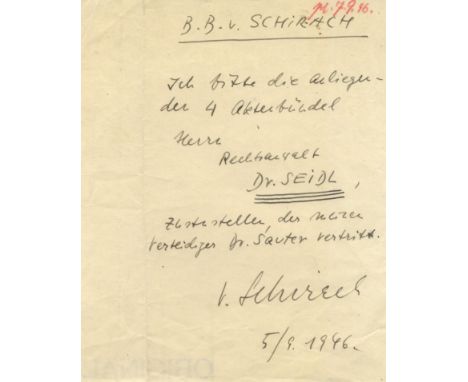 gl. 7.9.46.
B.B. v. SCHIRACH
Ich bitte die anliegen-
den 4 Aktenbündel
Herrn
Rechtsanwalt
Dr. SEIDL,
zuzustellen, der meinen
Verteidiger Dr. Sauter vertritt.
v. Schirach
5/9. 1946.
ORIGINAL